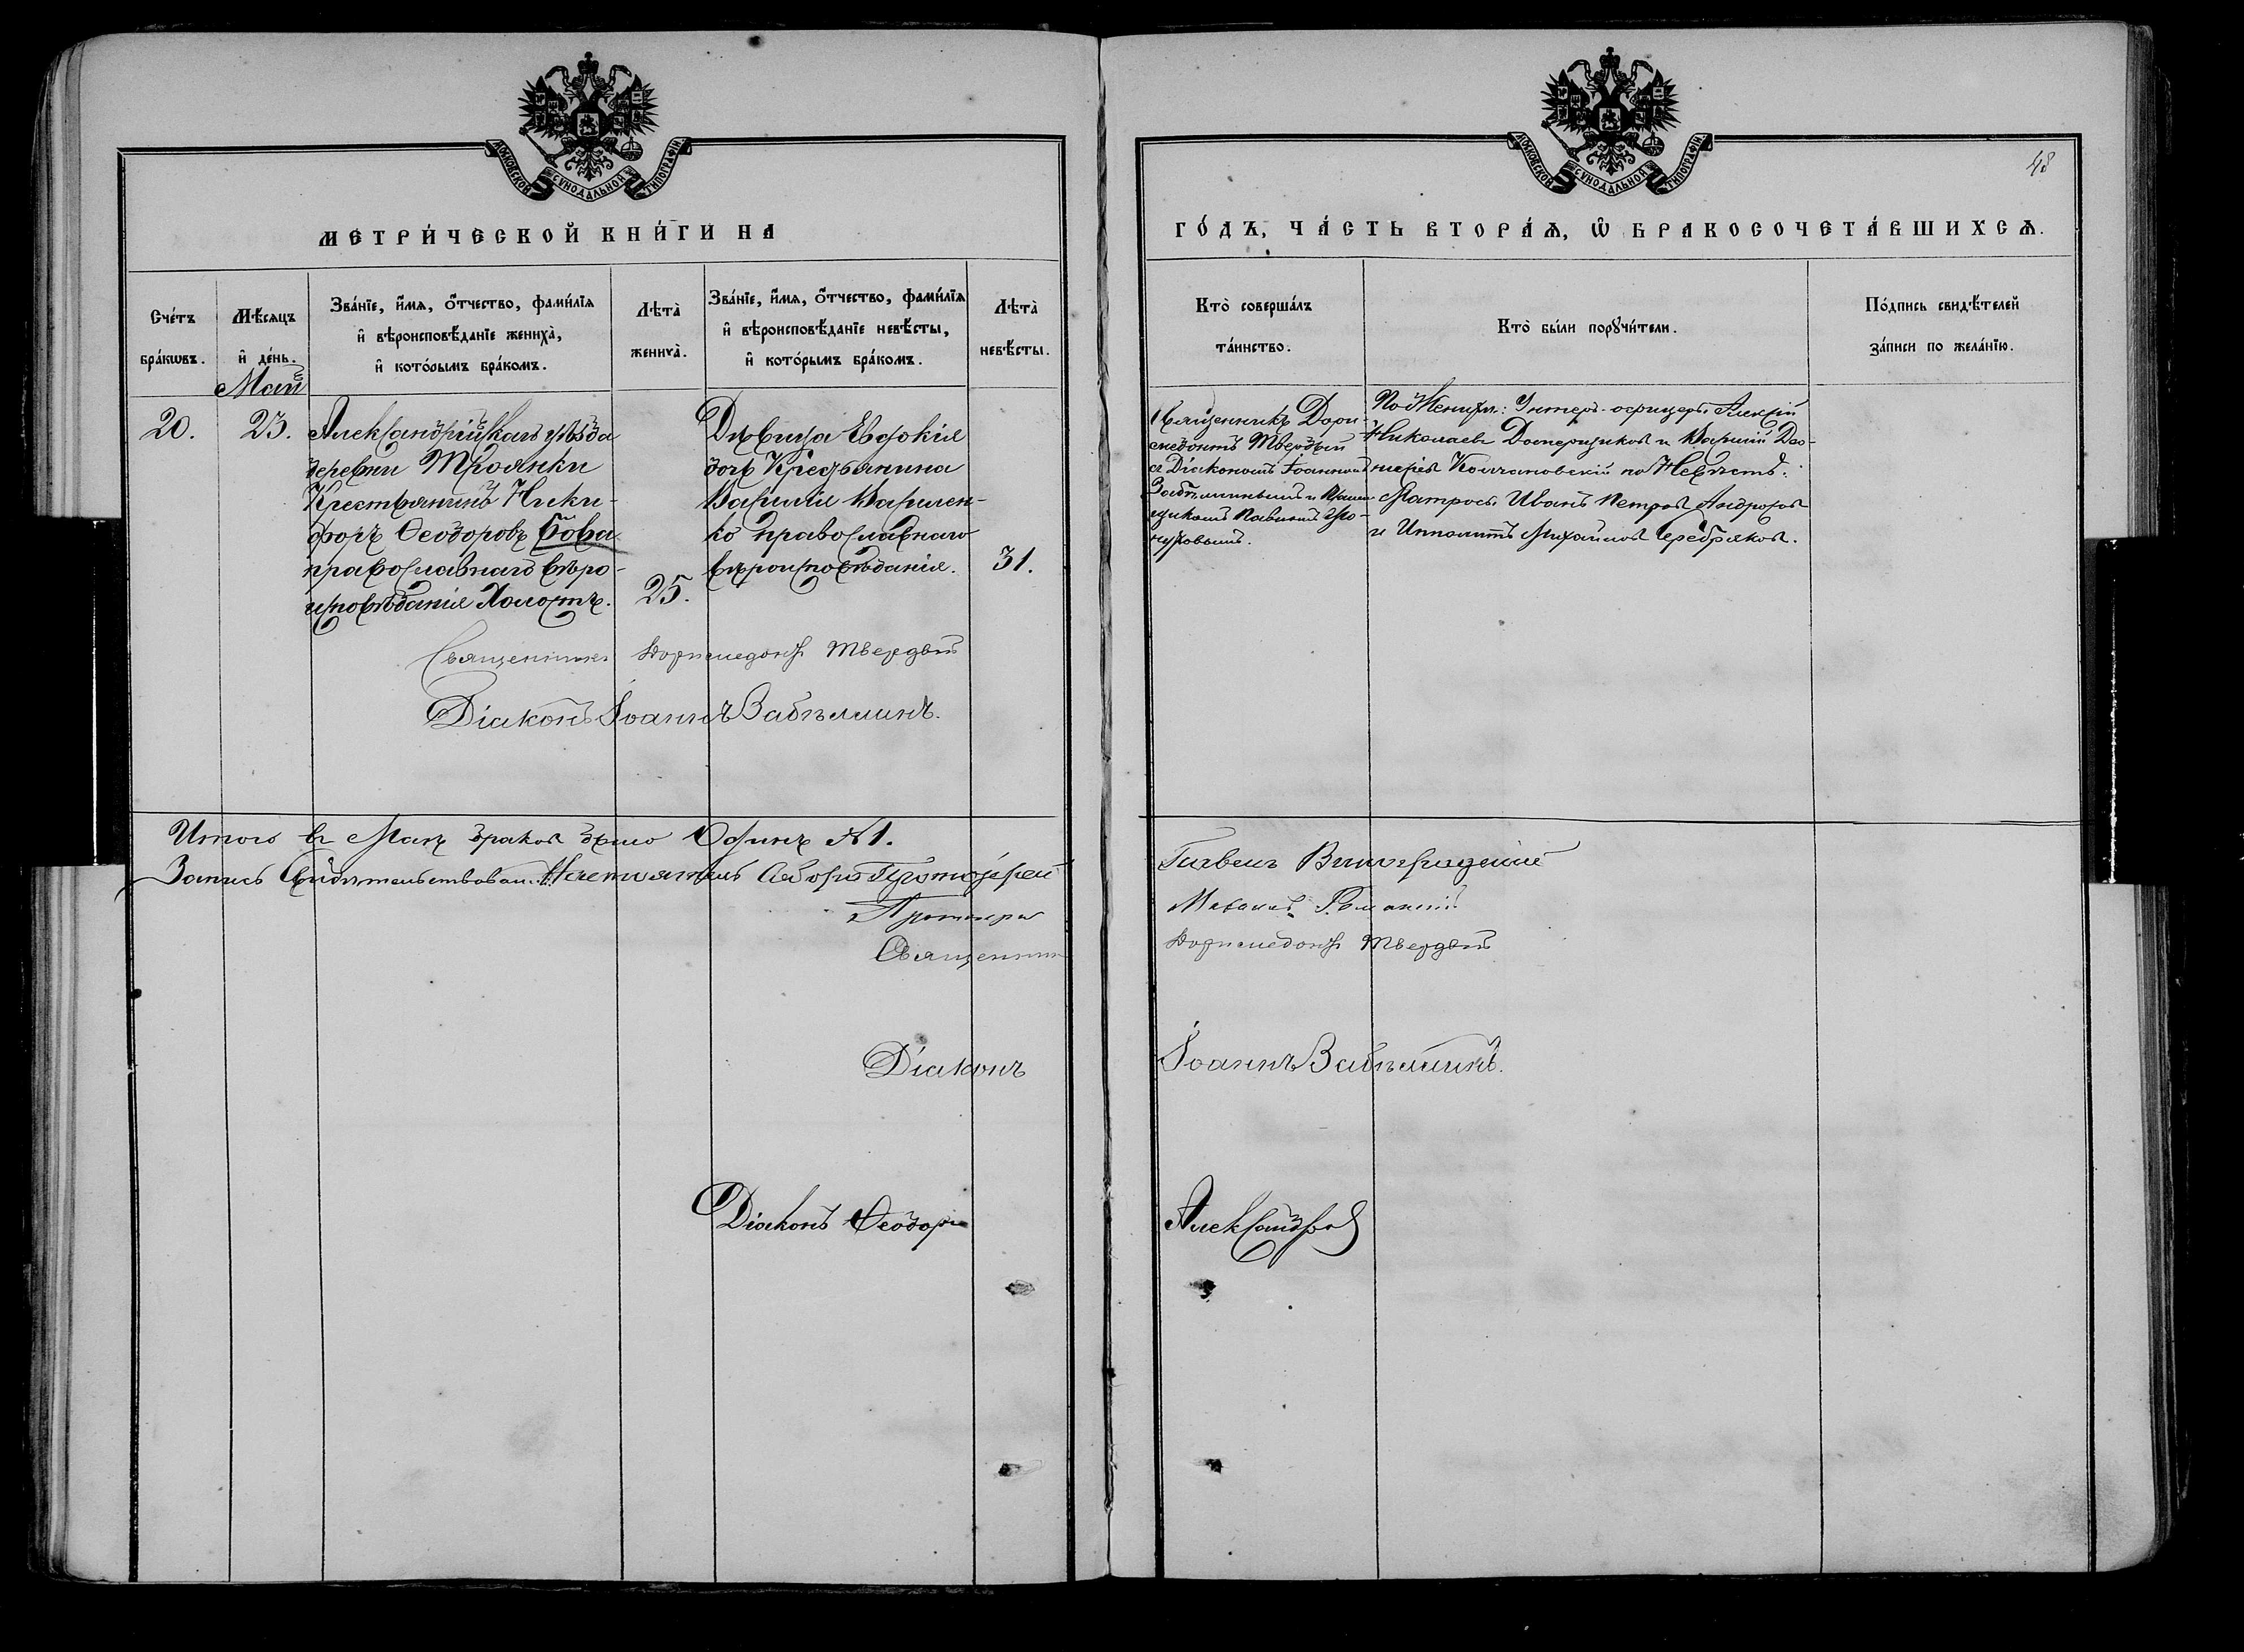 МОСКОВСКОЙ СУНОДАЛЬНОЙ ТИПОГРАФІИ.
МЕТРИ́ЧЕСКОЙ КНИ́ГИ НА
Сче́тъ бра́кѡвъ.
Мѣ́сяцъ и҆ де́нь.
Зва́нїе, и҆́мя, ѻ҆́тчество, фами́лїя
и҆ вѣроисповѣ́данїе жениха̀,
и҆ кото́рымъ бра́комъ.
Лѣта̀ жениха̀.
Зва́нїе, и҆́мя, ѻ҆́тчество, фами́лїя
и҆ вѣроисповѣ́данїе невѣ́сты,
и҆ кото́рымъ бра́комъ.
Лѣта̀ невѣ́сты.
Май
20.
23.
Александрійскаго уѣзда
деревни Троянки
Крестьянинъ Ники-
форъ Ѳеодоровъ Бова
православнаго вѣро-
исповѣданія Холостъ.
25.
Дѣвица Евдокія
дочь Крестьянина
Василія Василен-
ко православнаго
вѣроисповѣданія.
31.
Священникъ Доримедонтъ Твердый
Діаконъ Іоаннъ Забѣлинъ.
Итого въ Маѣ браковъ было Одинъ №1.
Запись Свидѣтельствовали: Настоятель Собора Протоіерей
Протоіерей
Священникъ
Діаконъ
Діаконъ Ѳеодоръ
МОСКОВСКОЙ СУНОДАЛЬНОЙ ТИПОГРАФІИ.
48
ГО́ДЪ, ЧА́СТЬ ВТОРА́Ѧ, Ѡ҆ БРАКОСОЧЕТА́ВШИХСѦ.
Кто̀ соверша́лъ
та́инство.
Кто̀ бы́ли порꙋчи́тели.
По́дпись свидѣ́телей
за́писи по жела́нїю.
Священникъ Дори-
медонтъ Твердый
съ Діакономъ Іоанномъ
По Женихѣ: Унтеръ-офицеръ Алексій
Николаевъ и Василій
по Невѣстѣ:
Матросъ Иванъ Петровъ
и Ипполитъ Михайловъ Серебряковъ.
Павелъ Виноградскій
Доримедонтъ Твердый
Іоаннъ Забѣлинъ.
Александровъ